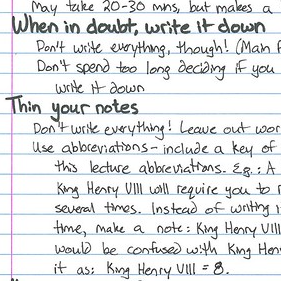 May take 20-30 mins, but makes a
When in doubt, write it down
Don't write everything, though! (Main
Don't spend too long deciding if you
write it down
Thin your notes
Don't write everything! Leave out
Use abbreviations - include a key of
this lecture abbreviations. E.g.: A
King Henry VIII will require you to
several times. Instead of writing
time, make a note: King Henry VIII
would be confused with King
it as: King Henry VIII = 8.